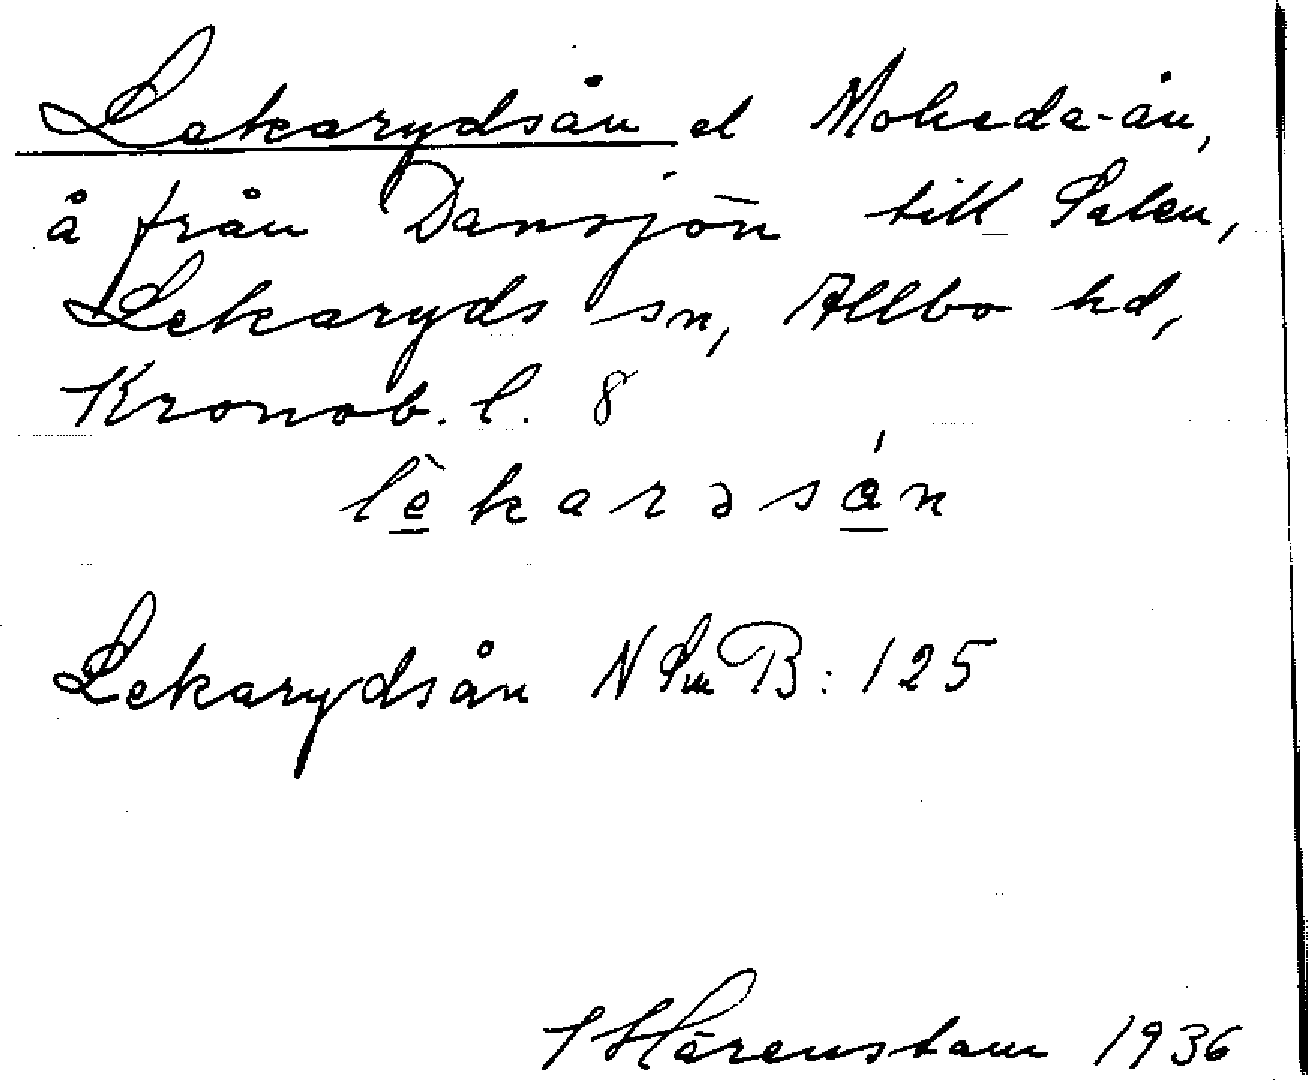 Lekarydsån el Moheda-ån,
å från Dansjön till Salen,
Lekaryds sn, Allbo hd,
Kronob. l. 8
lèkarəsán
Lekarydsån N Sm B: 125
Hårenstam 1936